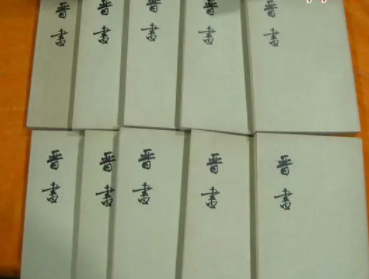 晋書
晋書
晋書
晋書
晋書
晋書
晋書
晋書
晋書
晋書